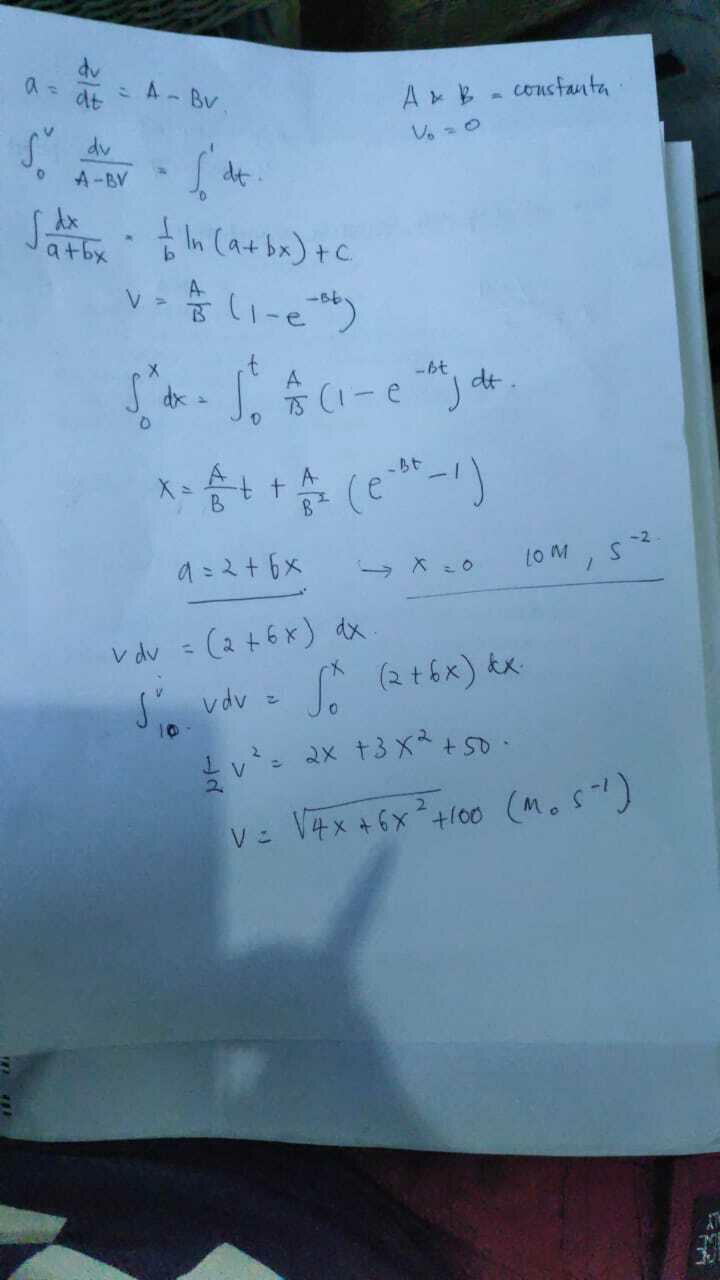 a = dv/dt = A - BV. A & B = constanta.
V₀ = 0
∫₀ᵛ dv/A-BV = ∫₀' dt.
∫ dx/a+bx = 1/b ln (a+bx) + C
V = A/B (1-e^-Bt)
∫₀ˣ dx = ∫₀ᵗ A/B (1-e^-Bt) dt.
x = A/B t + A/B² (e^-Bt - 1)
a = 2 + 6x → x = 0 10 M, s^-2.
v dv = (2 + 6x) dx.
∫₁₀ᵛ vdv = ∫₀ˣ (2+6x) dx.
1/2 v² = 2x + 3x² + 50.
V = √4x + 6x² + 100 (M. s^-1)